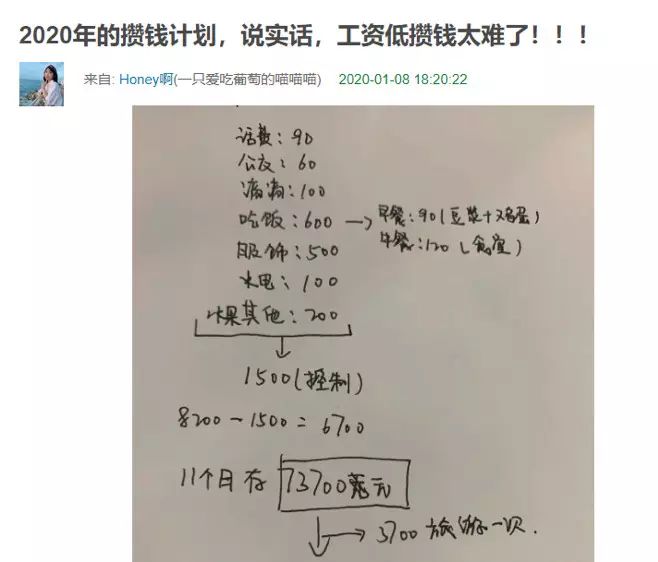 2020年的攒钱计划，说实话，工资低攒钱太难了！！！
来自: Honey啊(一只爱吃葡萄的喵喵喵) 2020-01-08 18:20:22
话费：90
公交：60
滴滴：100
吃饭：600 → 早餐：90(豆浆+鸡蛋)
午餐：120(食堂)
服饰：500
水电：100
水果其他：200
1500(控制)
8200-1500=6700
11个月存 73700元
3700 旅游一次.